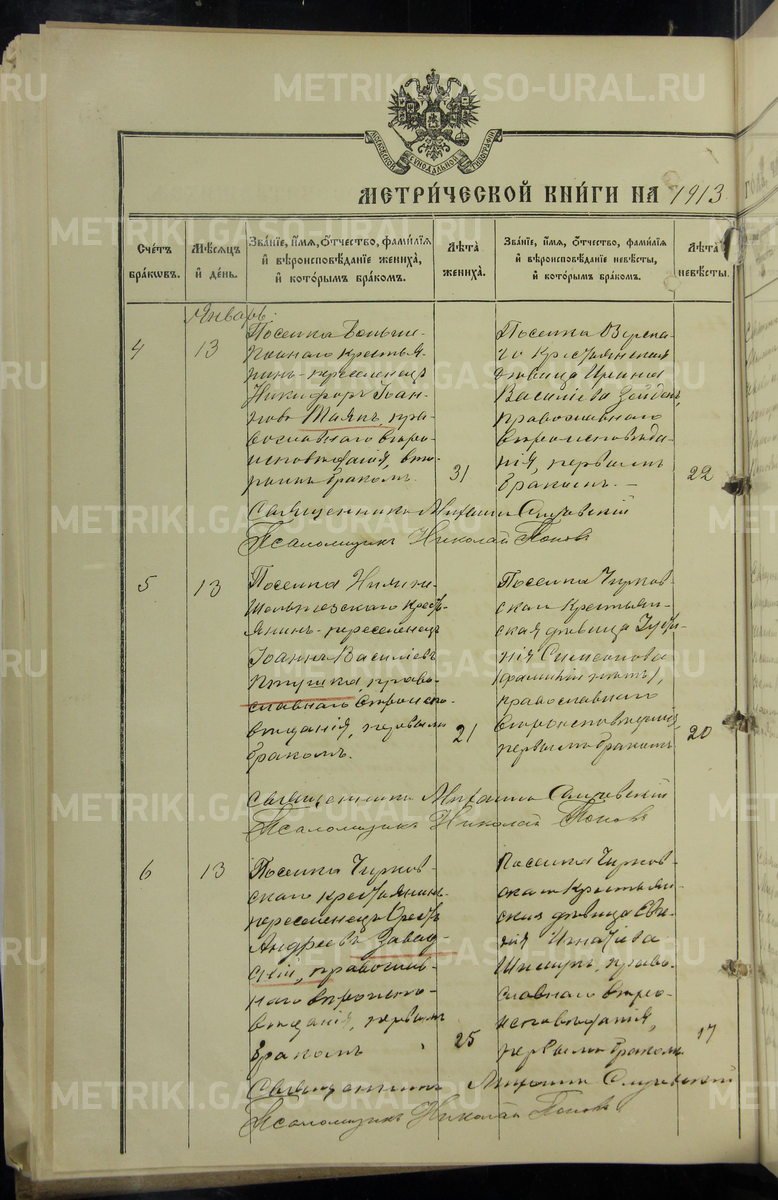 МЕТРИ́ЧЕСКОЙ КНИ́ГИ НА 1913
Счетъ бра́ковъ.
Мѣсяцъ и́ де́нь.
Зва́нїе, и́мя, ѻ҆́тчество, фами́лїя и́ вѣроисповѣ́данїе жениха̀, и́ кото́рымъ бра́комъ.
Лѣ́та жениха̀.
Зва́нїе, и́мя, ѻ҆́тчество, фами́лїя и́ вѣроисповѣ́данїе невѣ́сты, и́ кото́рымъ бра́комъ.
Лѣ́та невѣ́сты.
Январь:
4
13
Поселка
наго крестья-
нинъ-переселенецъ
Никифоръ Іоан-
новъ пра-
вославнаго вѣро-
исповѣданія, вто-
рымъ бракомъ.
31
Поселка
го крестьянская
дѣвица Ирина
Василіева
православнаго
вѣроисповѣда-
нія, первымъ
бракомъ. —
22
Священникъ Михаилъ
Псаломщикъ Николай Поповъ
5
13
Поселка Нижне-
кресть-
янинъ-переселенецъ
Іоаннъ Василіевъ
Птушка, право-
славнаго вѣроиспо-
вѣданія, первымъ
бракомъ.
21
Поселка Чирков-
скаго крестьян-
ская дѣвица Іусти-
нія Симеонова
(фамиліи нѣтъ),
православнаго
вѣроисповѣданія,
первымъ бракомъ
20
Священникъ Михаилъ
Псаломщикъ Николай Поповъ
6
13
Поселка Чирков-
скаго крестьянинъ-
переселенецъ
Андреевъ Завад-
скій, православ-
наго вѣроиспо-
вѣданія, первымъ
бракомъ
25
Поселка Чирков-
скаго крестьян-
ская дѣвица Евге-
нія Игнатіева
право-
славнаго вѣро-
исповѣданія,
первымъ бракомъ
17
Священникъ Михаилъ
Псаломщикъ Николай Поповъ
METRIKI.GASO-URAL.RU